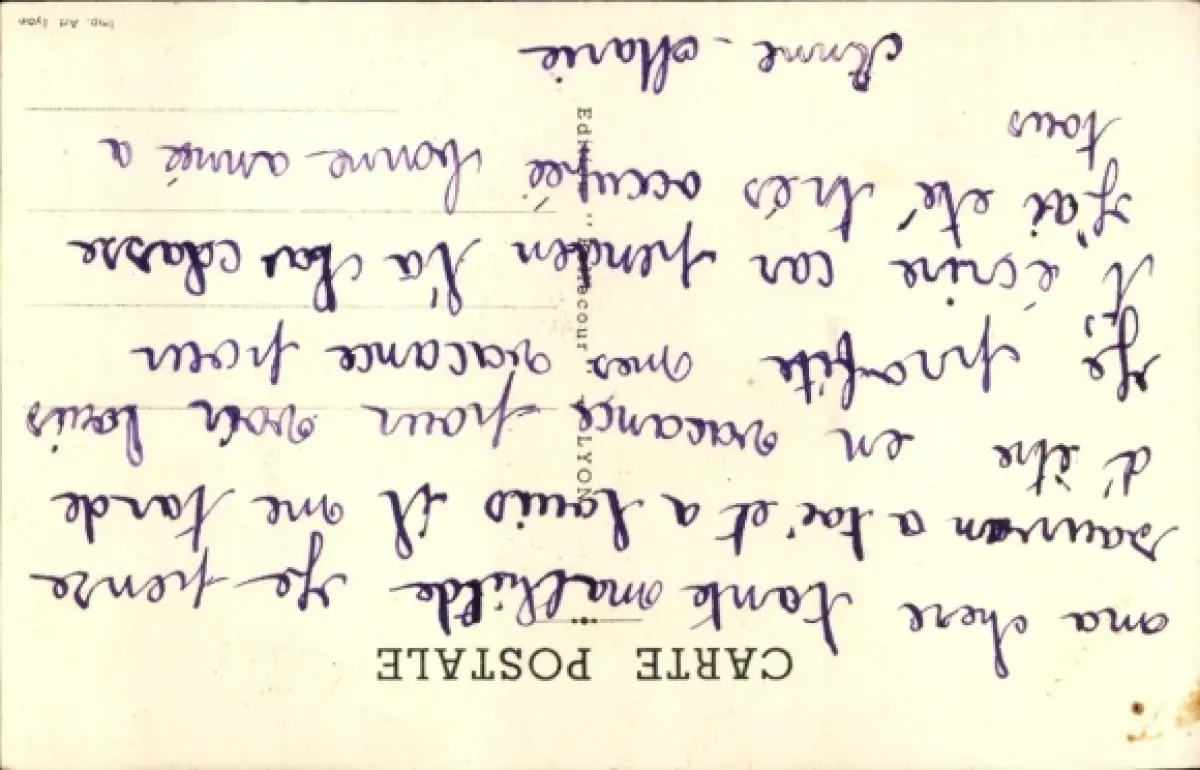 CARTE POSTALE
ma chere tante mathilde Je pense
souvan a toi et a Louis il me tarde
d'être en vacance pour voir Louis
Je profite mes vacance pour
t'écrire car penden la classe
J'ai eté trés occupéé bonne année a
tous
Anne-Marie
LYON
Imp. Art Lyon